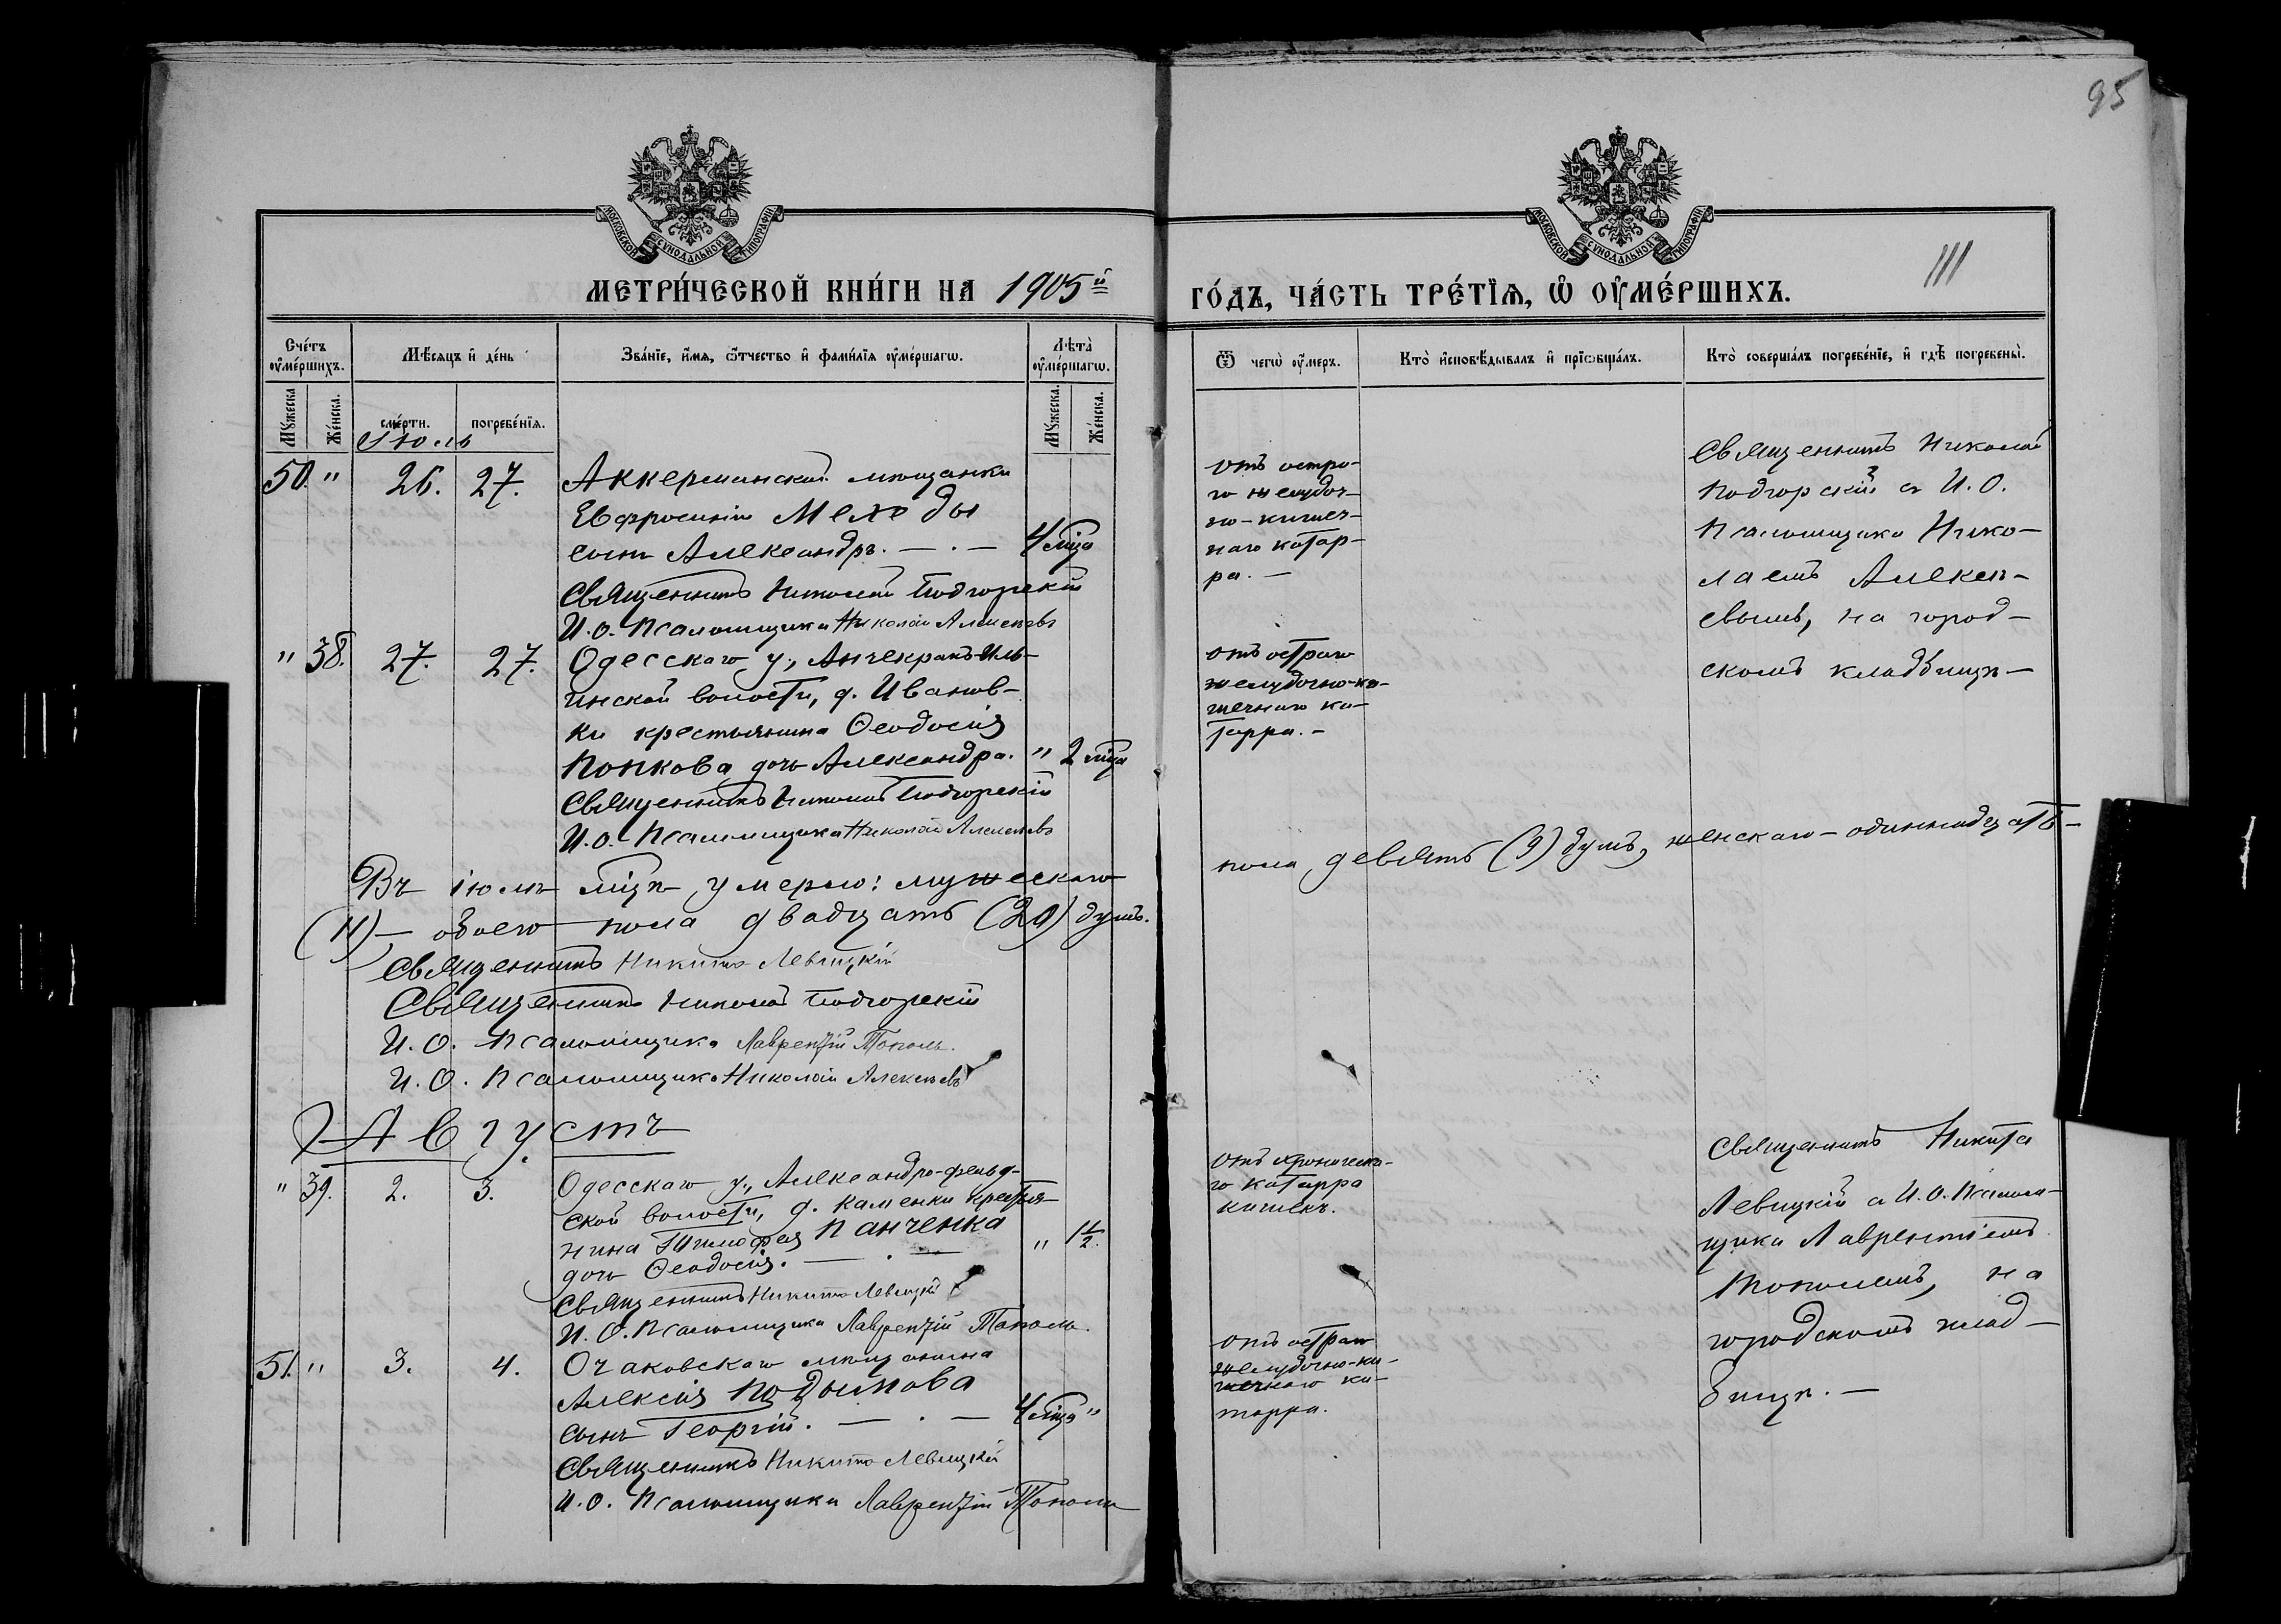 95
МОСКОВСКОЙ СУНОДАЛЬНОЙ ТИПОГРАФІИ
МОСКОВСКОЙ СУНОДАЛЬНОЙ ТИПОГРАФІИ
111
МЕТРИ́ЧЕСКОЙ КНИ́ГИ НА 1905й
ГО́ДЪ, ЧА́СТЬ ТРЕ́ТІѦ, Ѡ҆ ОУ҆МЕ́РШИХЪ.
Сче́тъ оу҆ме́ршихъ.
Мѣ́сяцъ и҆ де́нь
Зва́нїе, и҆́мя, ѻ҆́тчество и҆ фами́лїя оу҆ме́ршагѡ.
Лѣ́та оу҆ме́ршагѡ.
Мꙋ́жеска
Же́нска.
сме́рти.
погребе́нїя.
Мꙋ́жеска.
Же́нска.
Ѿ чегѡ̀ оу҆́меръ.
Кто̀ и҆сповѣ́дывалъ и҆ прїѡбща́лъ.
Кто̀ соверша́лъ погребе́нїе, и҆ гдѣ̀ погребены̀.
Іюль
50. " 26. 27. Аккерманской мѣщанки
Евфросиніи Меледы
сынъ Александръ. — . — 4 мѣца
Священникъ Николай Подгорскій
И. о. Псаломщика Николай Алексѣевъ
отъ остра-
го желудоч-
но-кишеч-
наго катар-
ра. —
Священникъ Николай
Подгорскій съ И. О.
Псаломщика Нико-
лаемъ Алексѣ-
евымъ, на город-
скомъ кладбищѣ —
" 38. 27. 27. Одесскаго у., Анчекракъ-Иль-
инской волости, д. Иванов-
ки крестьянина Ѳеодосія
Попкова дочь Александра. " 2 мѣца
Священникъ Николай Подгорскій
И. о. Псаломщика Николай Алексѣевъ
отъ остраго
желудочно-ки-
шечнаго ка-
тарра. —
Въ іюлѣ мѣцѣ умерло: мужескаго
пола девять (9) душъ, женскаго — одиннадцать —
(11) — обоего пола двадцать (20) душъ.
Священникъ Никита Левицкій
Священникъ Николай Подгорскій
И. О. Псаломщика Лаврентій Тополь.
И. О. Псаломщика Николай Алексѣевъ
Августъ
" 39. 2. 3. Одесскаго у., Александро-фельд-
ской волости, д. Каменки крестья-
нина Тимофея Панченка
дочь Ѳеодосія. — . — " 1½.
Священникъ Никита Левицкій
И. О. Псаломщика Лаврентій Тополь.
отъ хроническа-
го катарра
кишекъ.
Священникъ Никита
Левицкій съ И. О. Псалом-
щика Лаврентіемъ
Тополемъ, на
городскомъ клад-
бищѣ. —
51. " 3. 4. Очаковскаго мѣщанина
Алексія Подымова
сынъ Георгій. — . — 4 мѣца "
Священникъ Никита Левицкій
И. о. Псаломщика Лаврентій Тополь
отъ остраго
желудочно-ки-
шечнаго ка-
тарра.